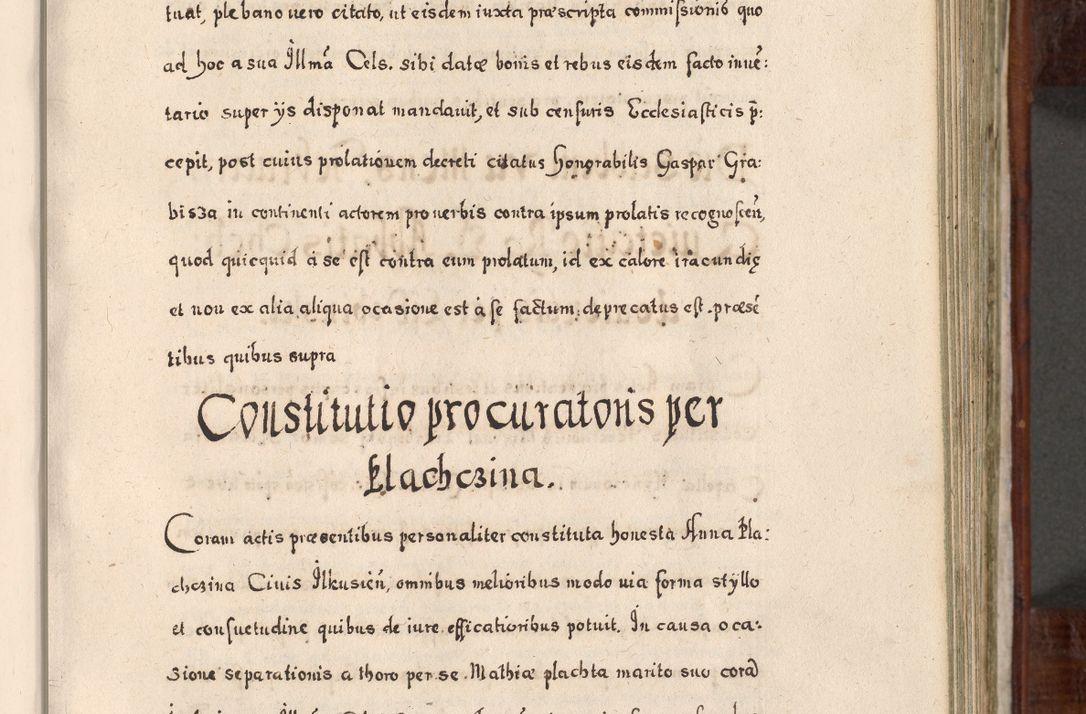 tuat, plebano uero citato, ut eisdem iuxta præscripta commissionis quo
ad hoc a sua Illmã Cels. sibi datæ bonis et rebus eisdem facto inuẽ:
tario super ijs disponat mandauit, et sub censuris Ecclesiasticis p̃:
cepit, post cuius prolationem decreti citatus Honorabilis Gaspar Gra:
bisza in continenti actorem pro uerbis contra ipsum prolatis recognoscen̄,
quod quicquid á se est contra eum prolatum, id ex calore iracundię
et non ex alia aliqua ocasione est à se factum, deprecatus est. præsẽ
tibus quibus supra
Constitutio procuratoris per
Plachczina.
Coram actis præsentibus personaliter constituta honesta Anna Pla:
chczina Ciuis Ilkusien̄, omnibus melioribus modo uia forma styllo
et consuetudine quibus de iure efficatioribus potuit. In causa oca:
sione separationis a thoro per se. Mathiæ plachta marito suo corā